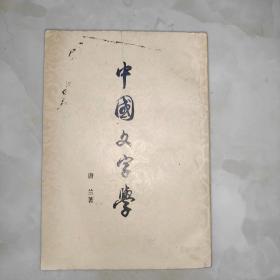 中國文字學
唐兰著